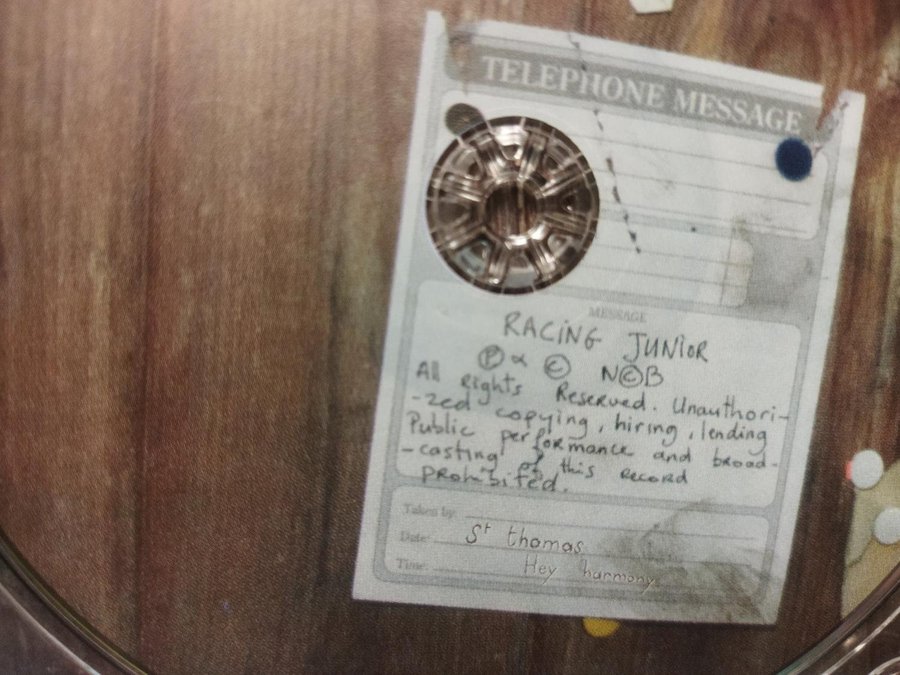 TELEPHONE MESSAGE
MESSAGE
RACING JUNIOR
Ⓟ & © N©B
All Rights Reserved. Unauthori-
-zed copying, hiring, lending
Public performance and broad-
-casting of this record
prohibited.
Taken by:
Date: St thomas
Time: Hey harmony